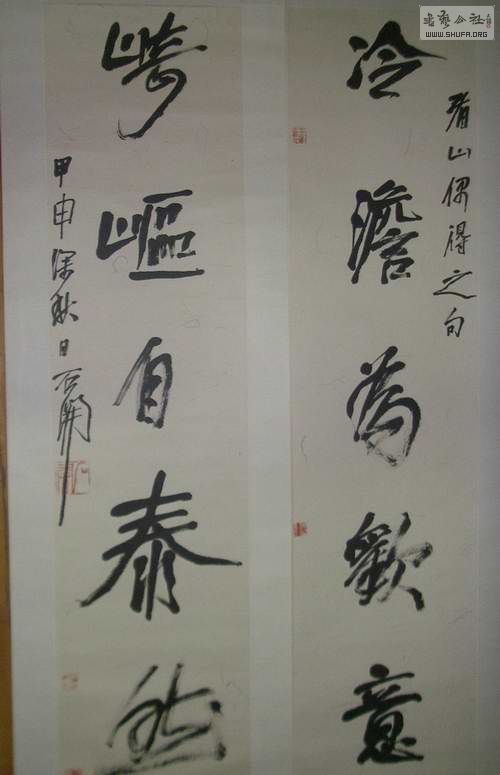 書藝公社
WWW.SHUFA.ORG
看山偶得之句
冷澹為歡意
崎嶇自泰然
甲申深秋日石開